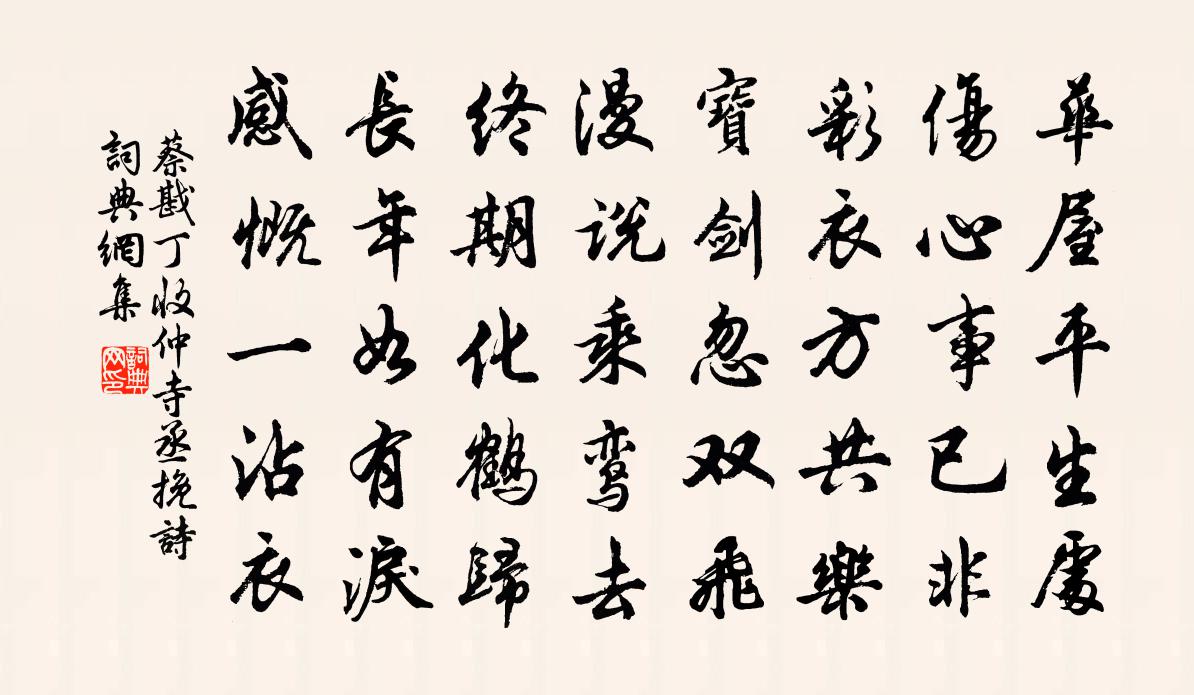 華屋平生處
傷心事已非
彩衣方共樂
寶劍忽双飛
漫说乘鸾去
终期化鶴歸
長年如有淚
感慨一沾衣
蔡戡丁收仲寺丞挽詩
詞典網集
詞典
网印